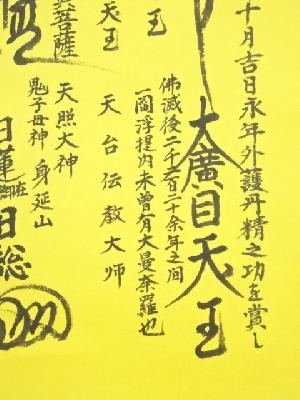 十月吉日永年外護丹精之功を賞し
大廣目天王
佛滅後二千二百二十余年之間
一閻浮提内未曽有大曼荼羅也
王
天台伝教大师
天王
天照大神
身延山
菩薩
鬼子母神
日蓮
日総